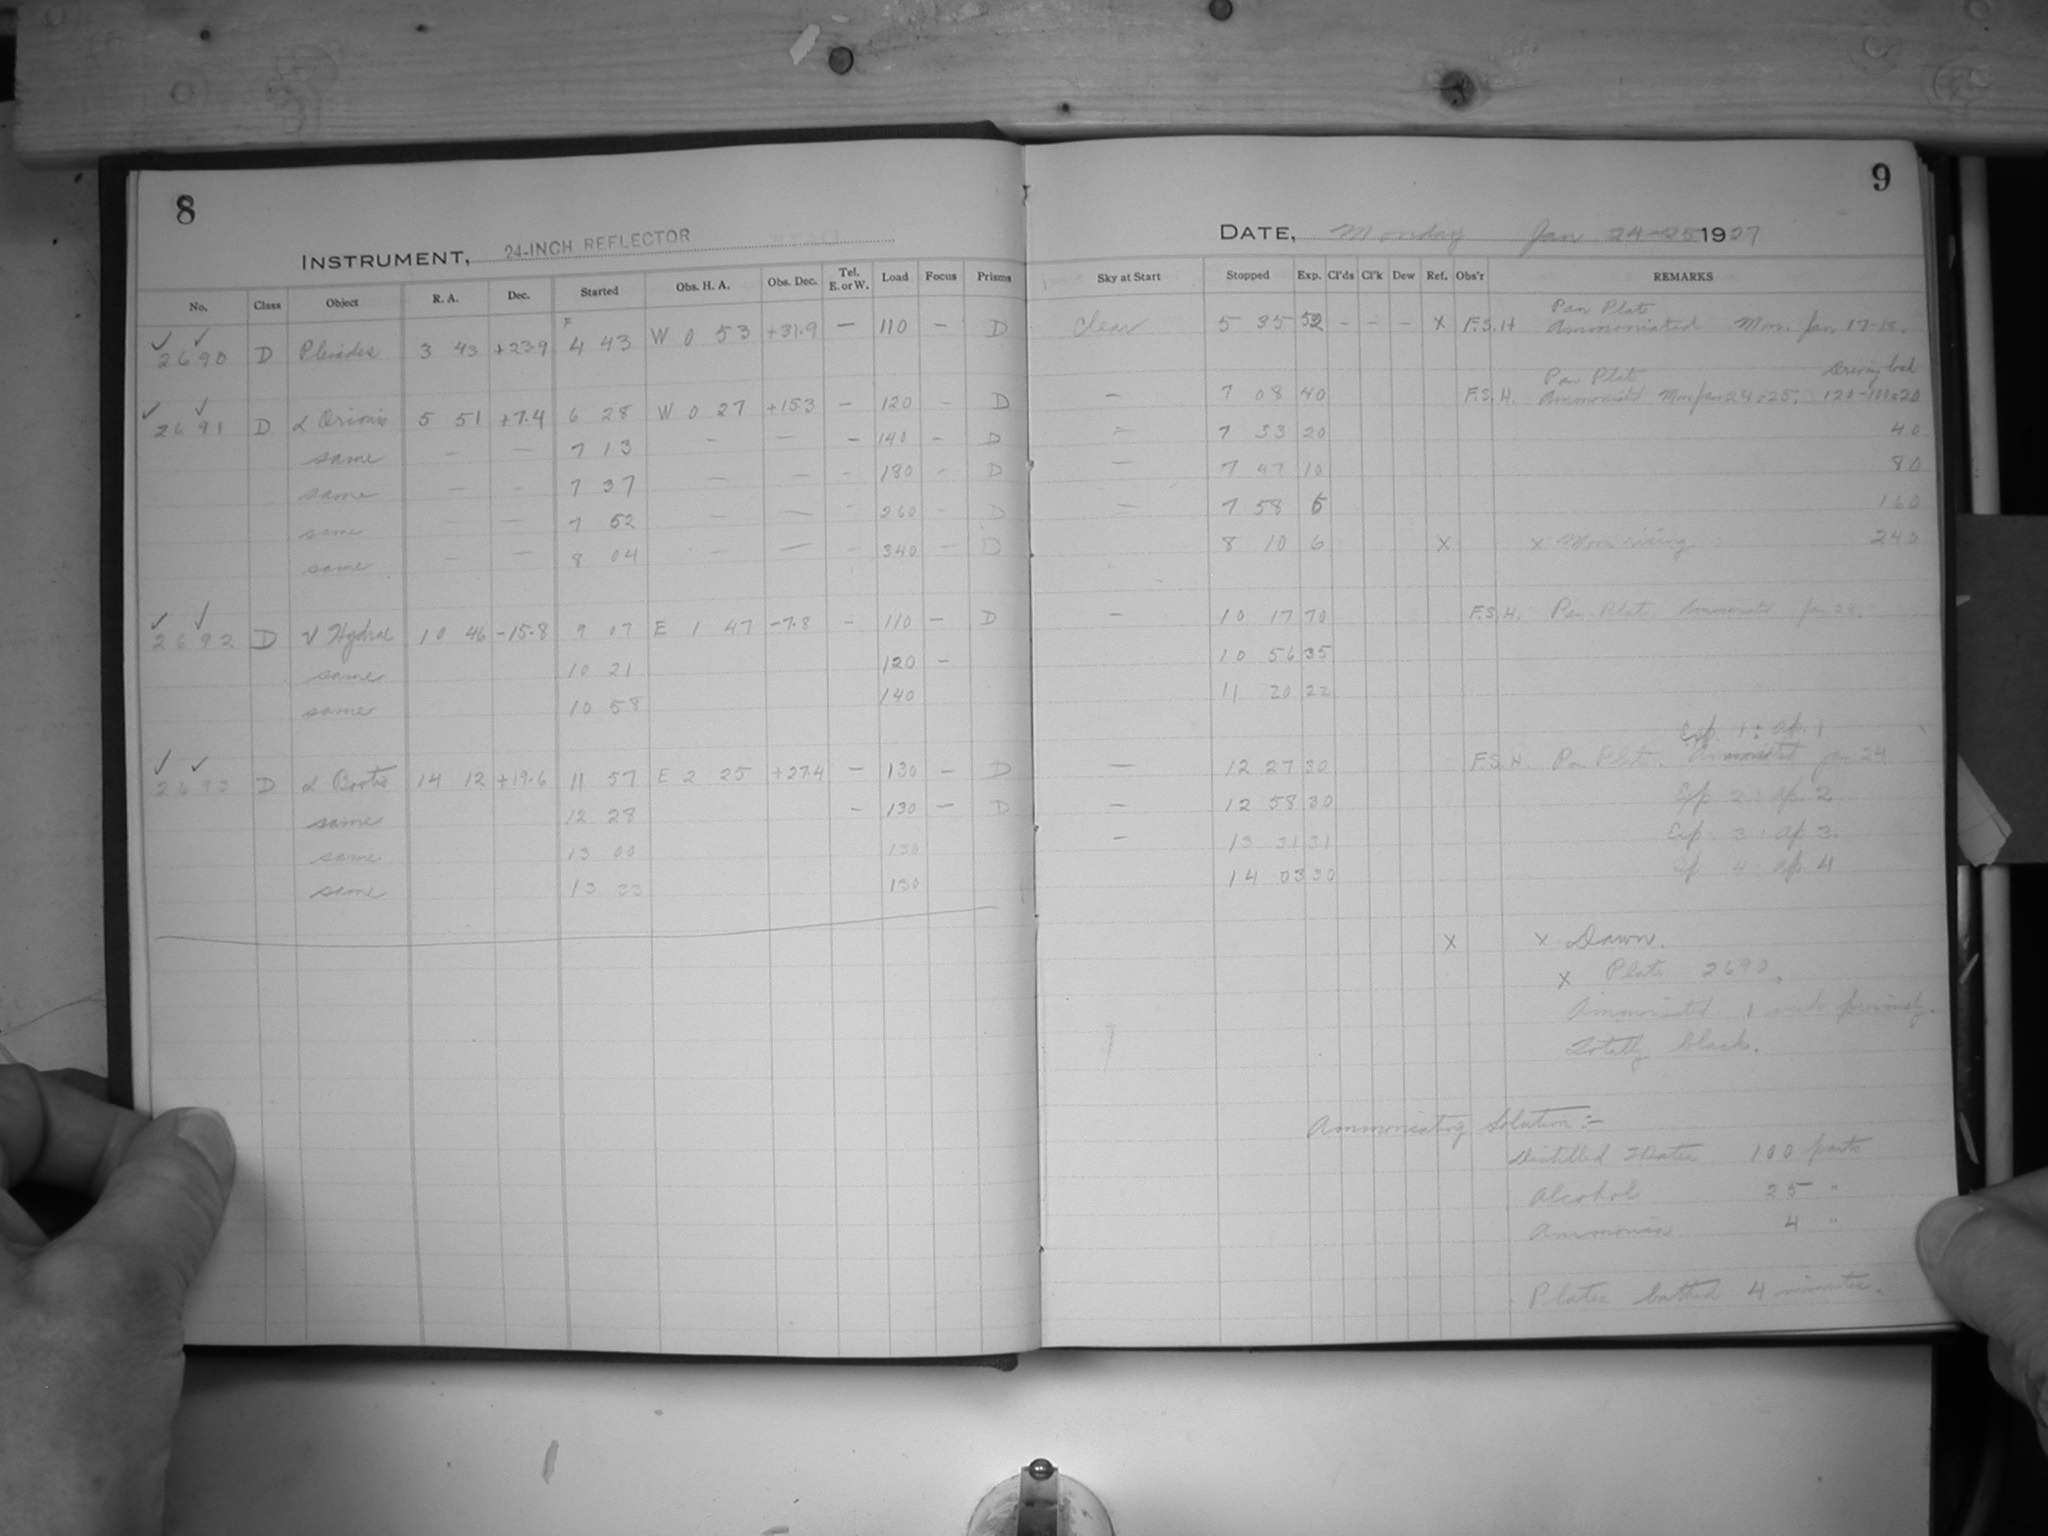 8
INSTRUMENT, 24-INCH REFLECTOR
No. Class Object R. A. Dec. Started Obs. H. A. Obs. Dec. Tel. E. or W. Load Focus Prisms
2690 D Pleiades 3 43 +23.9 4 43 W 0 53 +31.9 — 110 — D
2691 D α Orionis 5 51 +7.4 6 28 W 0 27 +15.3 — 120 — D
same — — 7 13 — — — 140 — D
same — — 7 37 — — — 180 — D
same — — 7 52 — — — 260 — D
same — — 8 04 — — — 340 — D
2692 D ν Hydrae 10 46 -15.8 9 07 E 1 47 -7.8 — 110 — D
same 10 21 120 —
same 10 58 140
2693 D α Bootis 14 12 +19.6 11 57 E 2 25 +27.4 — 130 — D
same 12 28 — 130 — D
same 13 00 130
same 13 33 130
9
DATE, Monday Jan 24-25 1927
Sky at Start Stopped Exp. Cl'ds Cl'k Dew Ref. Obs'r REMARKS
Pan Plate
Clear 5 35 52 — — — x F.S.H Ammoniated Mon. Jan 17-18.
Pan Plate Driving load
— 7 08 40 F.S.H. Ammoniated Mon Jan 24-25. 120-100=20
— 7 33 20 40
— 7 47 10 80
— 7 58 6 160
8 10 6 x x Moon rising 240
— 10 17 70 F.S.H. Pan Plate. Ammoniated Jan 24.
10 56 35
11 20 22
Exp. 1 : ap. 1
— 12 27 30 F.S.H. Pan Plate. Ammoniated Jan 24
— 12 58 30 Exp 2 : ap. 2
— 13 31 31 Exp. 3 : ap 3.
14 03 30 Exp 4 : ap. 4
x x Dawn.
x Plate 2690,
Ammoniated 1 week previously.
Totally black.
Ammoniating Solution:-
Distilled Water 100 parts
Alcohol 25 "
Ammonia 4 "
Plates bathed 4 minutes.